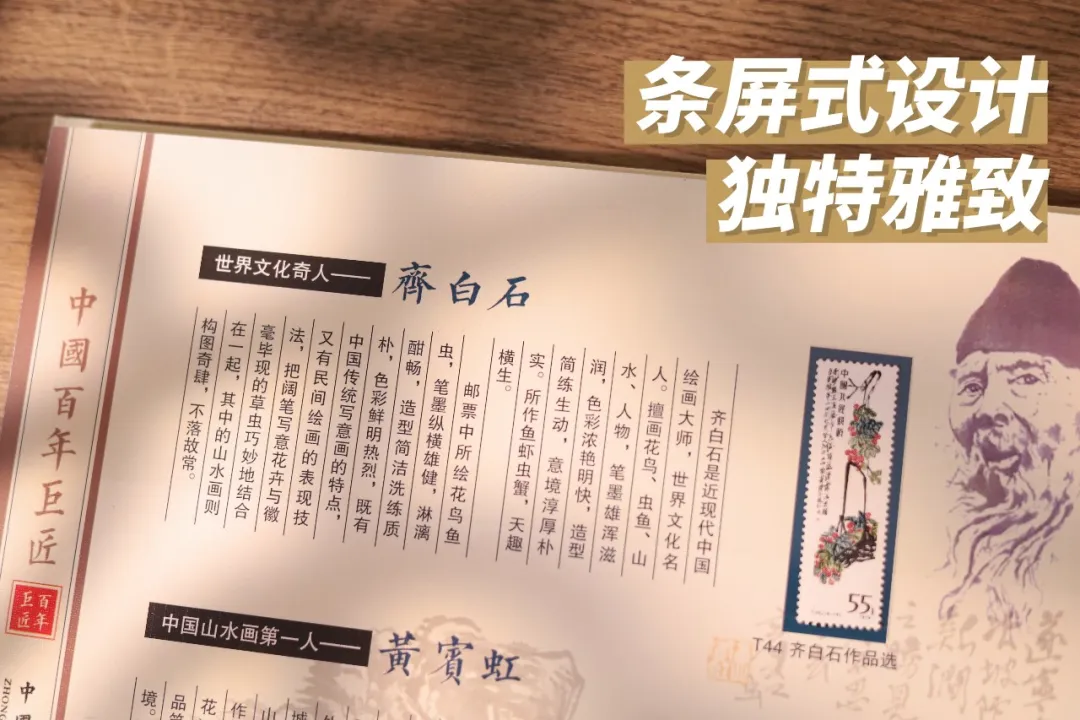 条屏式设计
独特雅致
中國百年巨匠
百年
巨匠
世界文化奇人——
齊白石
齐白石是近现代中国
绘画大师，世界文化名
人。擅画花鸟、虫鱼、山
水、人物，笔墨雄浑滋
润，色彩浓艳明快，造型
简练生动，意境淳厚朴
实。所作鱼虾虫蟹，天趣
横生。
邮票中所绘花鸟鱼
虫，笔墨纵横雄健，淋漓
酣畅，造型简洁洗练质
朴，色彩鲜明热烈，既有
中国传统写意画的特点，
又有民间绘画的表现技
法，把阔笔写意花卉与微
毫毕现的草虫巧妙地结合
在一起，其中的山水画则
构图奇肆，不落故常。
55
T44 齐白石作品选
中国山水画第一人——
黃賓虹
境。
ZHONG